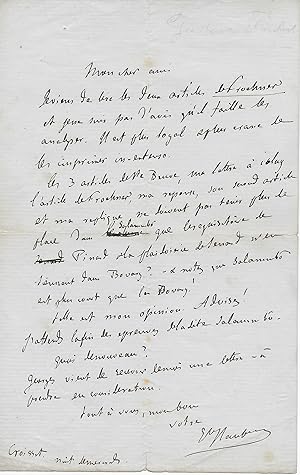 Mon cher ami.
Je viens de lire les deux articles de Froehner
et je ne suis pas d'avis qu'il faille les
analyser. Il est plus loyal & plus crâne de
les imprimer in-extenso.
Les 3 articles de Ste Beuve, ma lettre à
l'article de Froehner, ma réponse, son second article
et ma réplique ne doivent pas tenir plus de
place dans Salammbô que les réquisitoire de
Pinard & la plaidoirie de Senard n'en
tiennent dans Bovary? - & notez que Salammbô
est plus court que la Bovary!
Telle est mon opinion. Advise!
J'attends la fin des épreuves de ladite Salammbô.
Quoi de nouveau?
Georges vient de recevoir de moi une lettre à
prendre en considération.
tout à vous, mon bon
votre
Gve Flaubert
Croisset, nuit de mercredi.